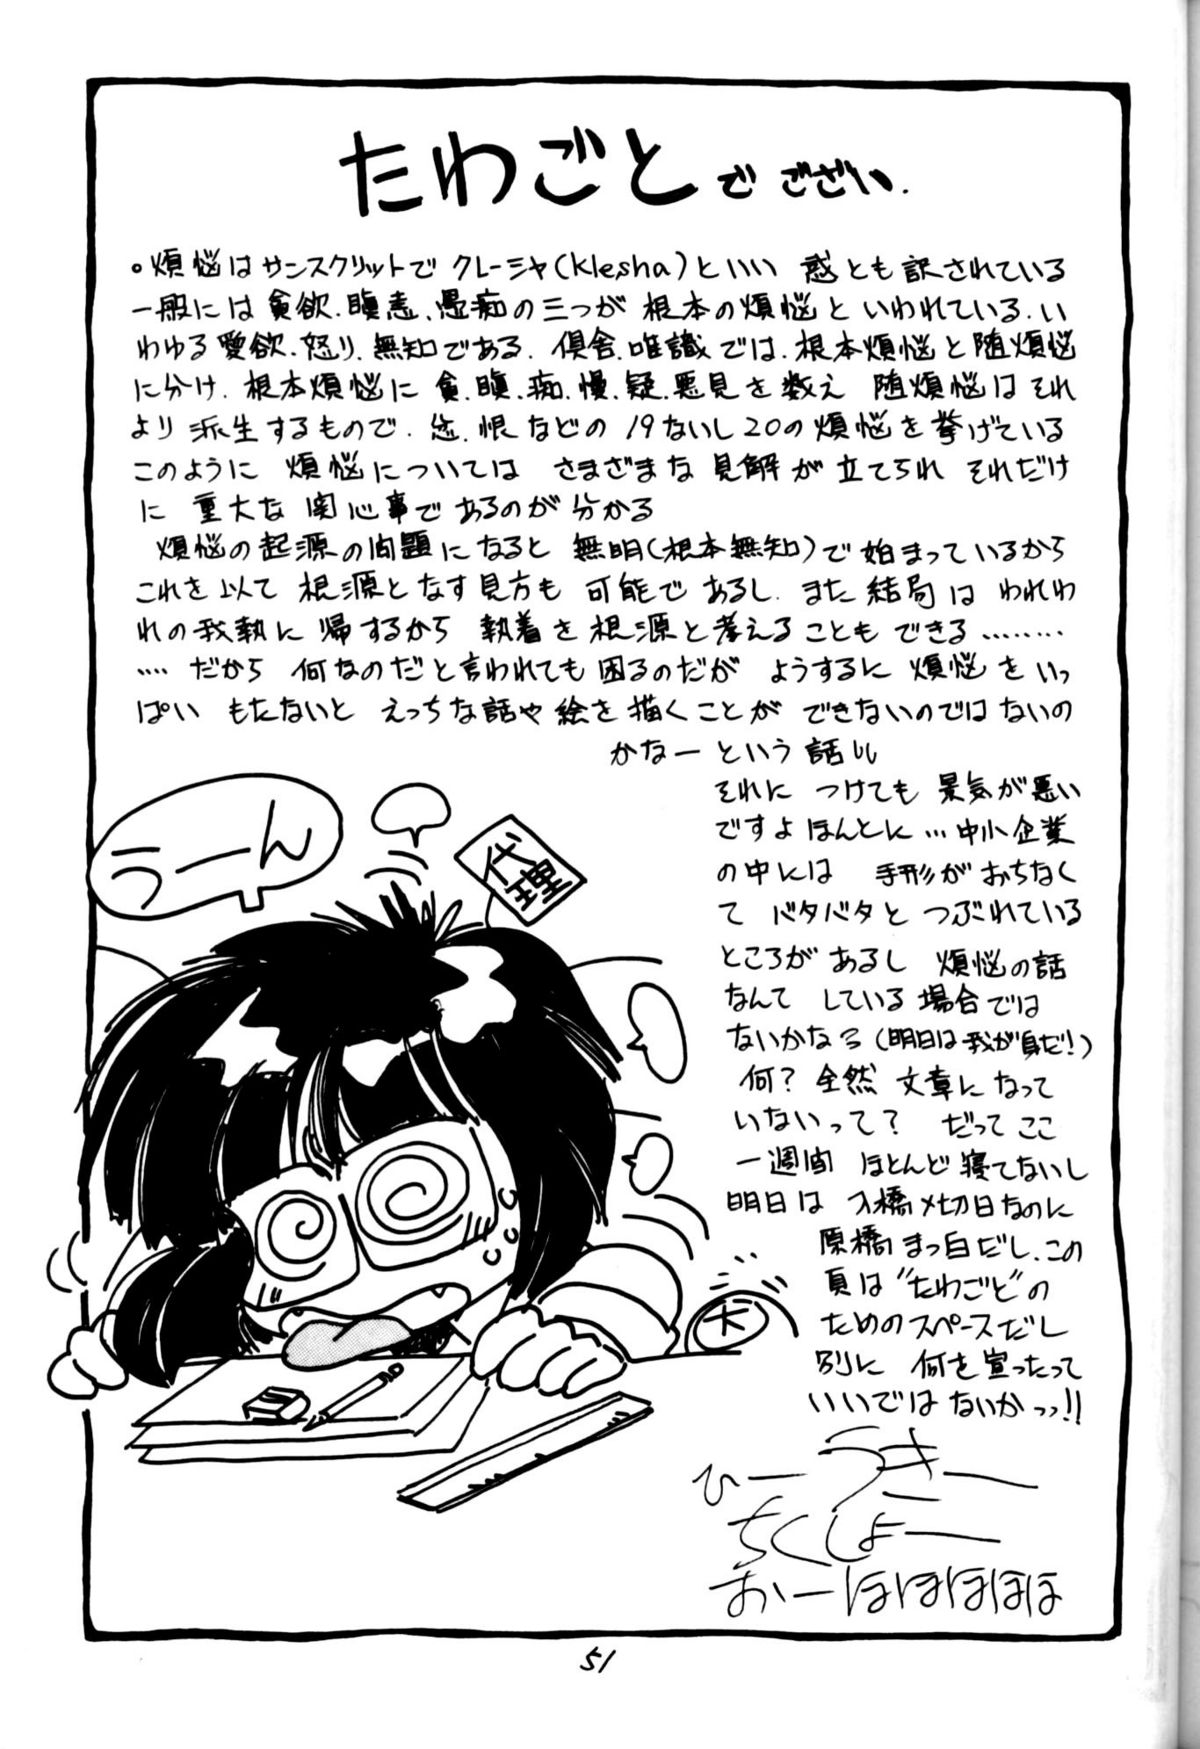 たわごとでござい.
。煩悩はサンスクリットでクレーシャ(klesha)といい 惑とも訳されている
一般には貪欲.瞋恚.愚痴の三つが根本の煩悩といわれている.い
わゆる愛欲.怒り.無知である.倶舎.唯識では.根本煩悩と随煩悩
に分け.根本煩悩に 貪.瞋.痴.慢.疑.悪見を数え 随煩悩はそれ
より派生するもので. 忿.恨などの19ないし20の煩悩を挙げている
このように 煩悩については さまざまな見解が立てられ それだけ
に 重大な関心事であるのが分かる
煩悩の起源の問題になると 無明(根本無知)で始まっているから
これを以て 根源となす見方も 可能であるし.また結局は われわ
れの我執に帰するから 執着を根源と考えることもできる………
…‥だから 何なのだと言われても困るのだが ようするに 煩悩をいっ
ぱい もたないと えっちな話や絵を描くことが できないのではないの
かなーという話
それに つけても 景気が悪い
ですよ ほんとに…中小企業
の中には 手形がおちなく
て バタバタと つぶれている
ところがあるし 煩悩の話
なんて している場合では
ないかなぅ(明日は我が身だ!)
何? 全然 文章になって
いないって? だって ここ
一週間 ほとんど寝てないし
明日は 入橋〆切日なのに
原橋まっ白だし.この
頁は“たわごと”の
ためのスペースだし
別に 何を宣ったって
いいではないかっっ!!
うーん
代理
大
ひー うきー
ちくしょー
おーほほほほほ
51